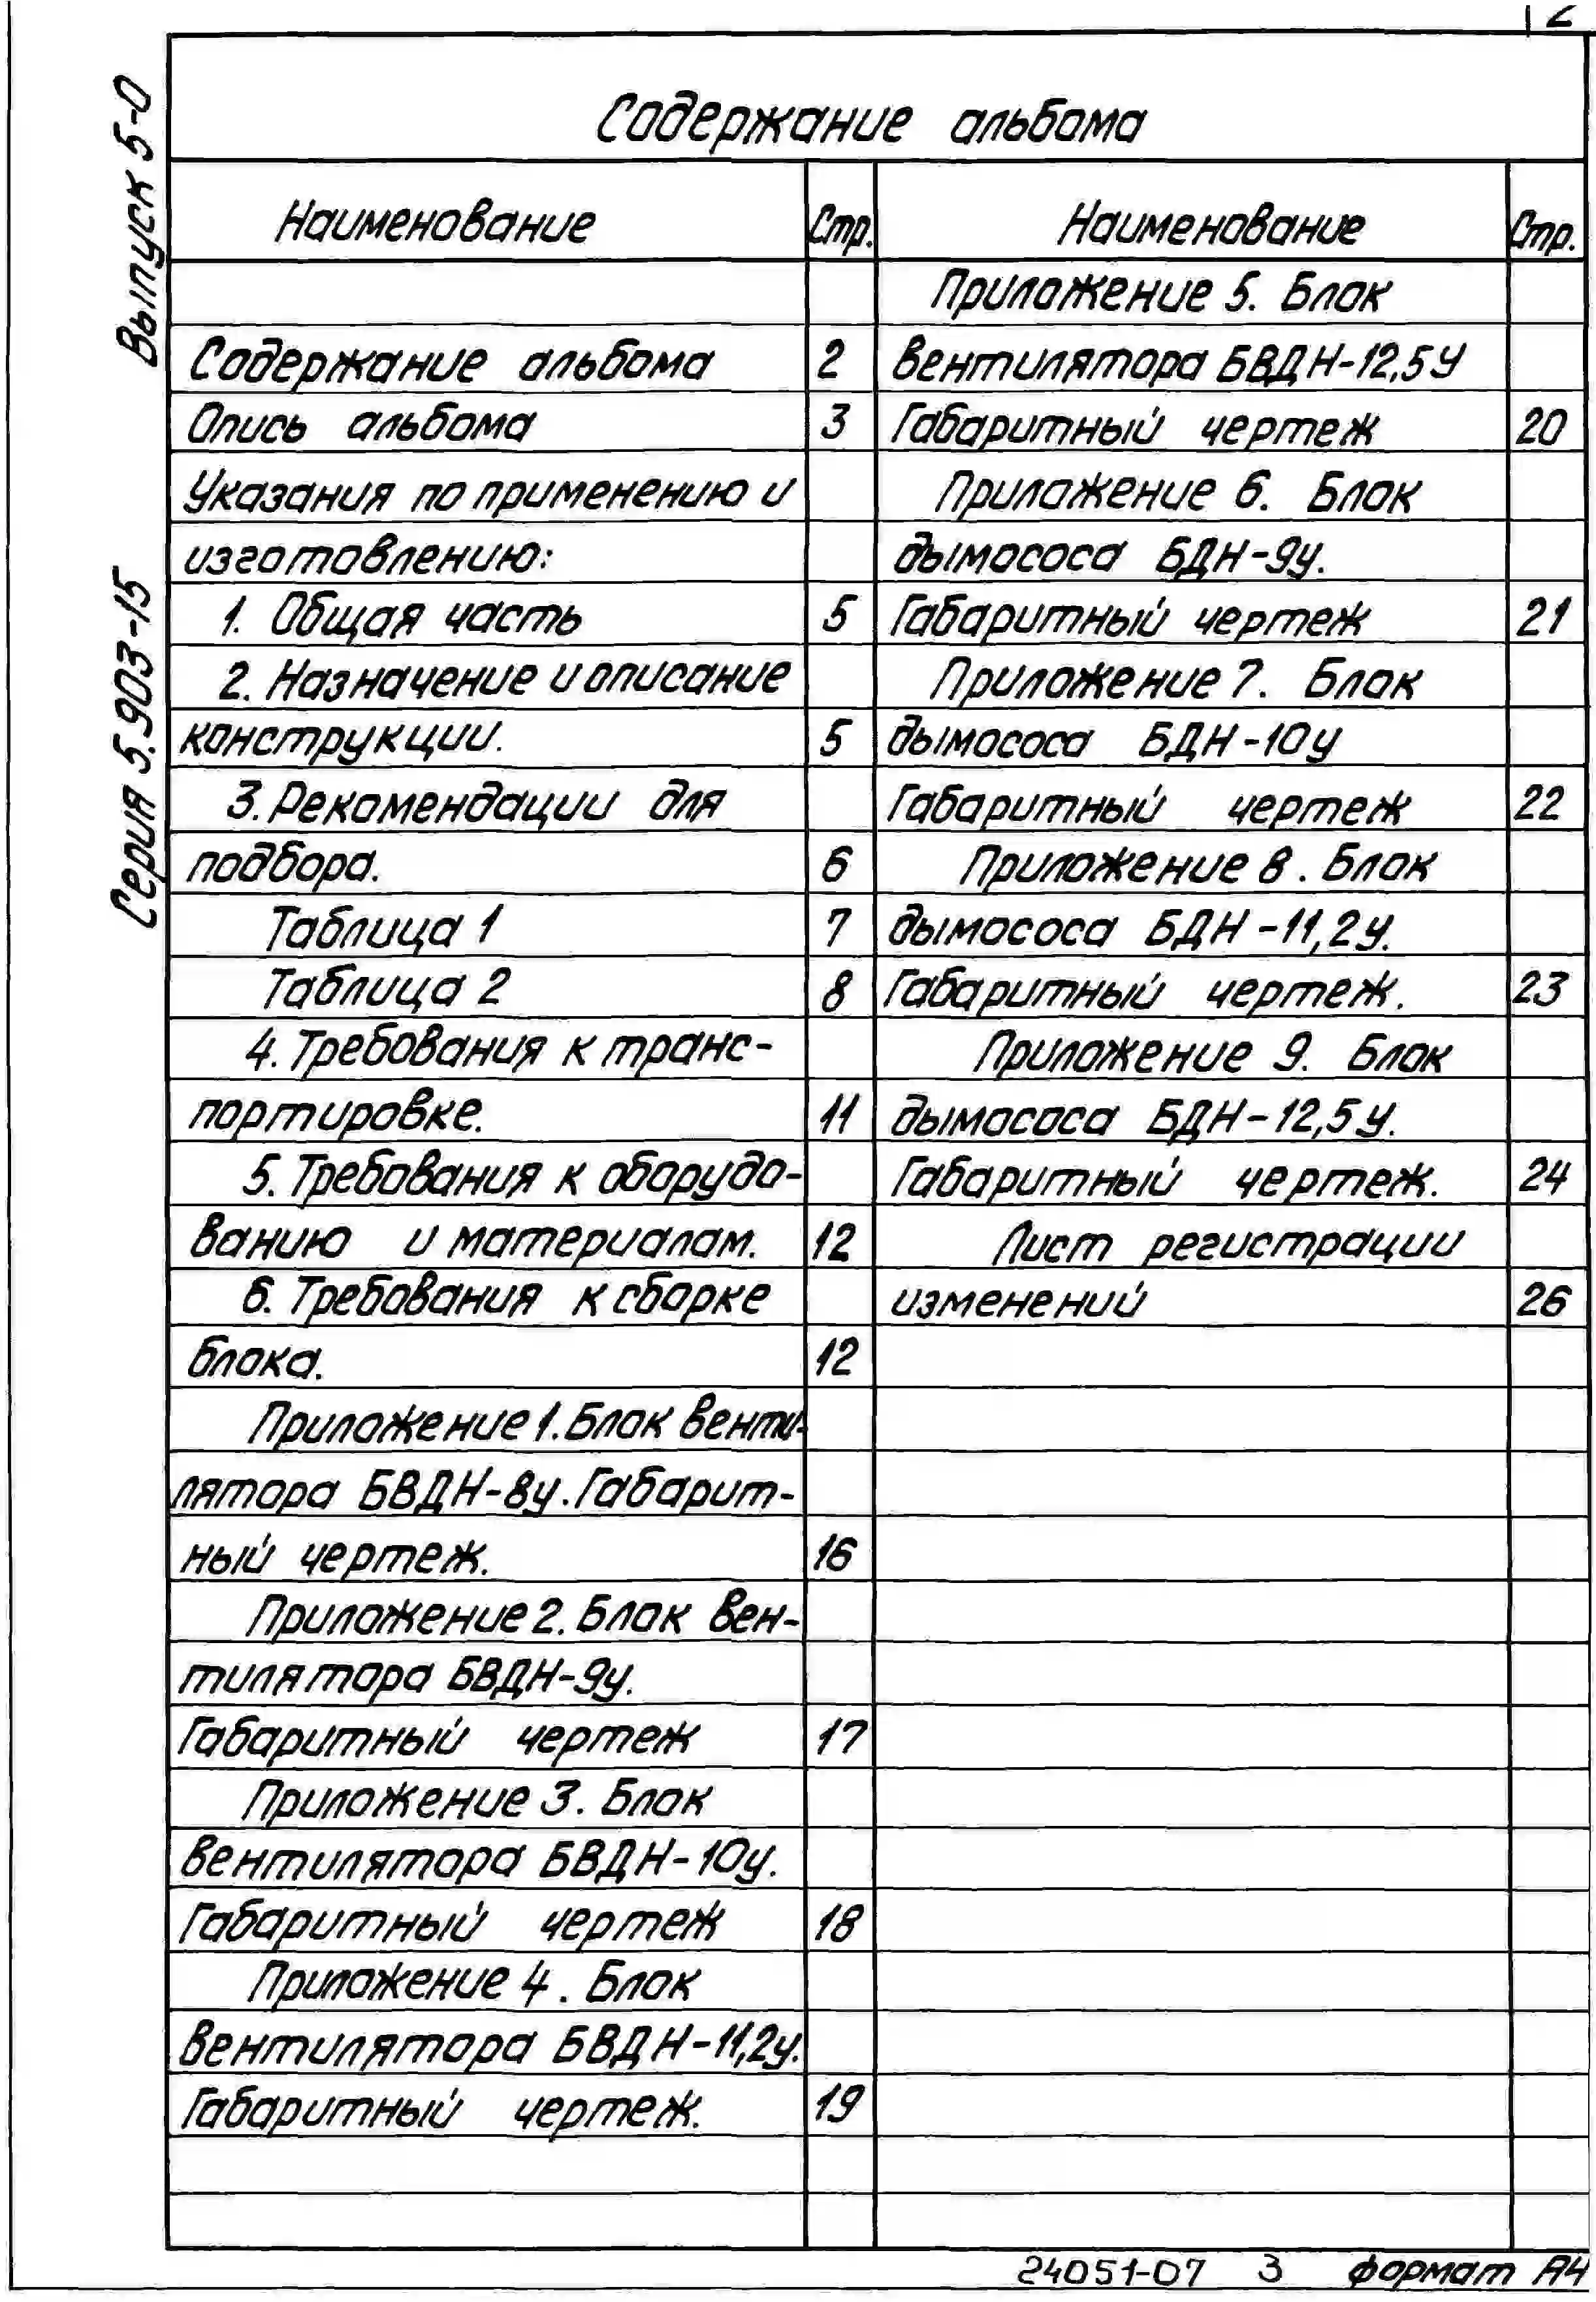 2
Серия 5.903-15 Выпуск 5-0
Содержание альбома
Наименование Стр.
Содержание альбома 2
Опись альбома 3
Указания по применению и
изготовлению:
1. Общая часть 5
2. Назначение и описание
конструкции. 5
3. Рекомендации для
подбора. 6
Таблица 1 7
Таблица 2 8
4. Требования к транс-
портировке. 11
5. Требования к оборудо-
ванию и материалам. 12
6. Требования к сборке
блока. 12
Приложение 1. Блок венти-
лятора БВДН-8у. Габарит-
ный чертеж. 16
Приложение 2. Блок вен-
тилятора БВДН-9у.
Габаритный чертеж 17
Приложение 3. Блок
вентилятора БВДН-10у.
Габаритный чертеж 18
Приложение 4. Блок
вентилятора БВДН-11,2у.
Габаритный чертеж. 19
Наименование Стр.
Приложение 5. Блок
вентилятора БВДН-12,5У
Габаритный чертеж 20
Приложение 6. Блок
дымососа БДН-9у.
Габаритный чертеж 21
Приложение 7. Блок
дымососа БДН-10у
Габаритный чертеж 22
Приложение 8. Блок
дымососа БДН-11,2у.
Габаритный чертеж. 23
Приложение 9. Блок
дымососа БДН-12,5у.
Габаритный чертеж. 24
Лист регистрации
изменений 26
24051-07 3 формат А4